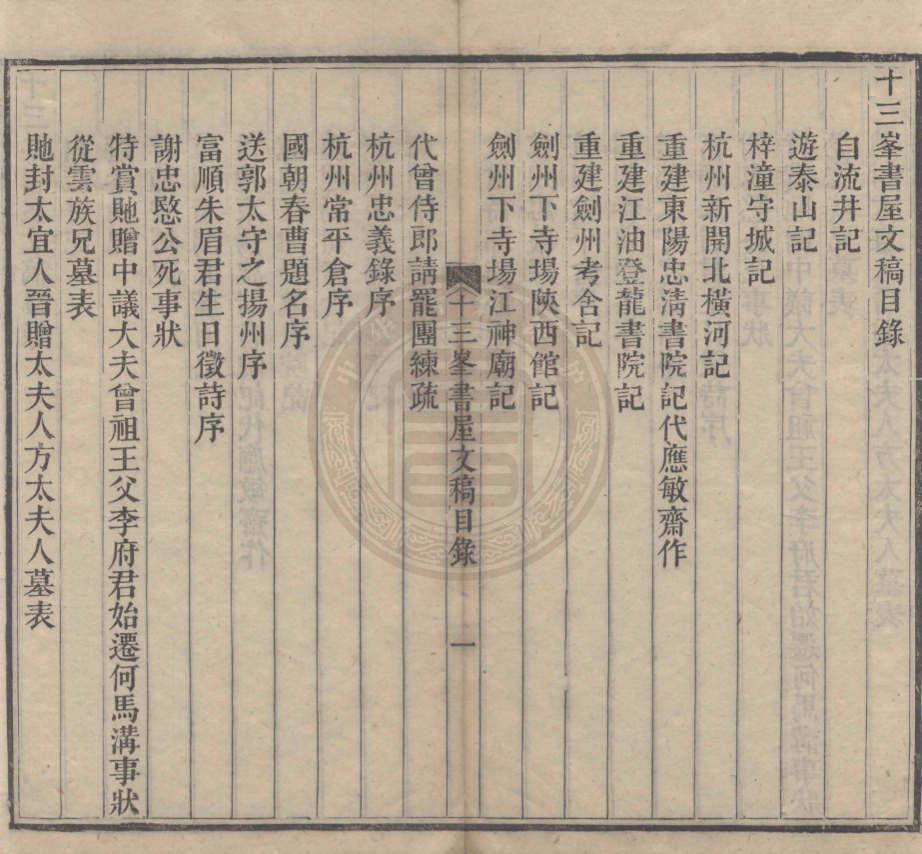 十三峯書屋文稿目錄
自流井記
遊泰山記
梓潼守城記
杭州新開北橫河記
重建東陽忠淸書院記代應敏齋作
重建江油登龍書院記
重建劍州考舍記
劍州下寺場陝西館記
劍州下寺場江神廟記
十三峯書屋文稿目錄 一
代曾侍郎請罷團練疏
杭州忠義錄序
杭州常平倉序
國朝春曹題名序
送郭太守之揚州序
富順朱眉君生日徵詩序
謝忠愍公死事狀
特賞貤贈中議大夫曾祖王父李府君始遷何馬溝事狀
從雲族兄墓表
貤封太宜人晉贈太夫人方太夫人墓表